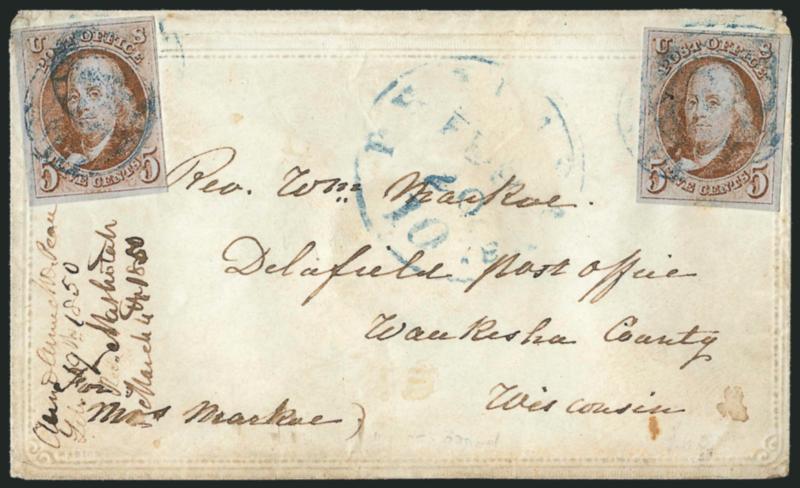 U S
POST OFFICE
FIVE CENTS
5 5
U S
POST OFFICE
FIVE CENTS
5 5
FEB
10
Rev. Wm Markoe.
Delafield Post Office
Waukesha County
Wisconsin
(For
Mrs Markoe)
19th 1850
Nashotah
March 4th 1850